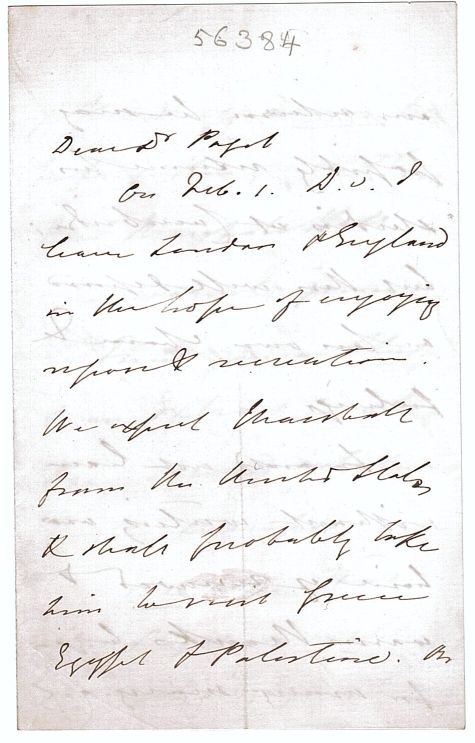 56384
Dear Dr Paget
On Feb. 1. D. v. I
leave London & England
in the hope of enjoying
repose & recreation.
We expect Marshall
from the United States
& shall probably take
him to visit Greece
Egypt & Palestine. As